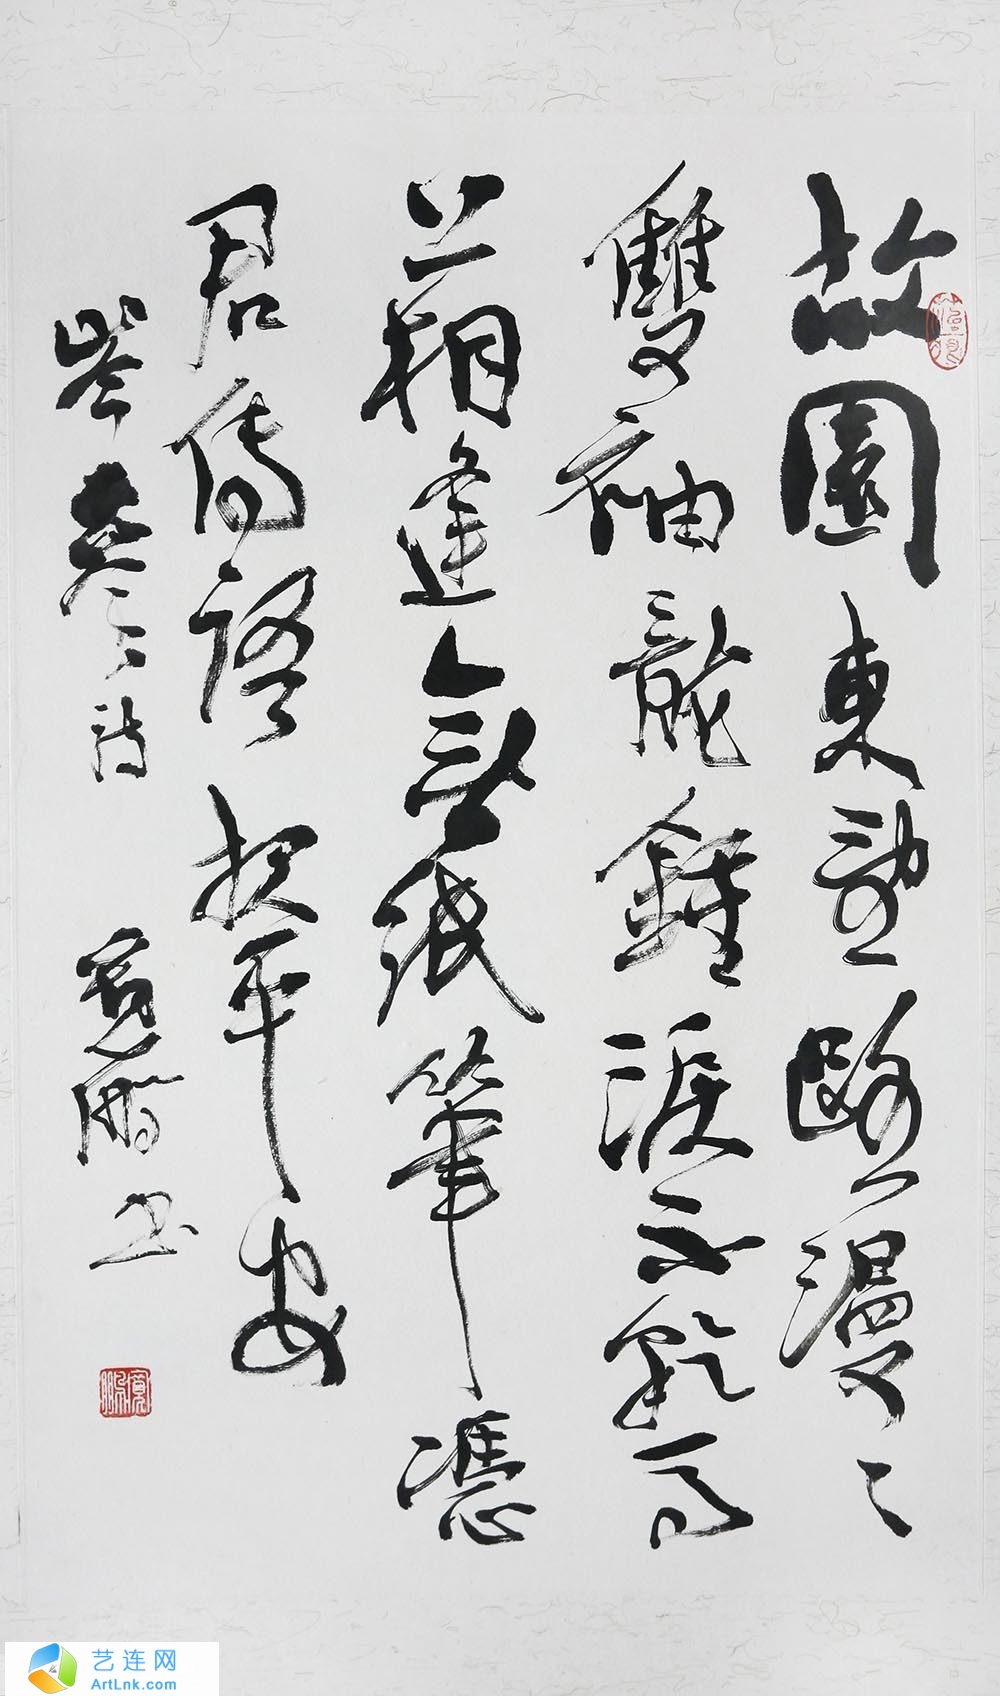 故園東望路漫〻
雙袖龍鍾淚不乾馬
上相逢無紙筆憑
君傳語報平安
岑參詩 寬鵬书
寬鵬
艺连网
ArtLnk.com